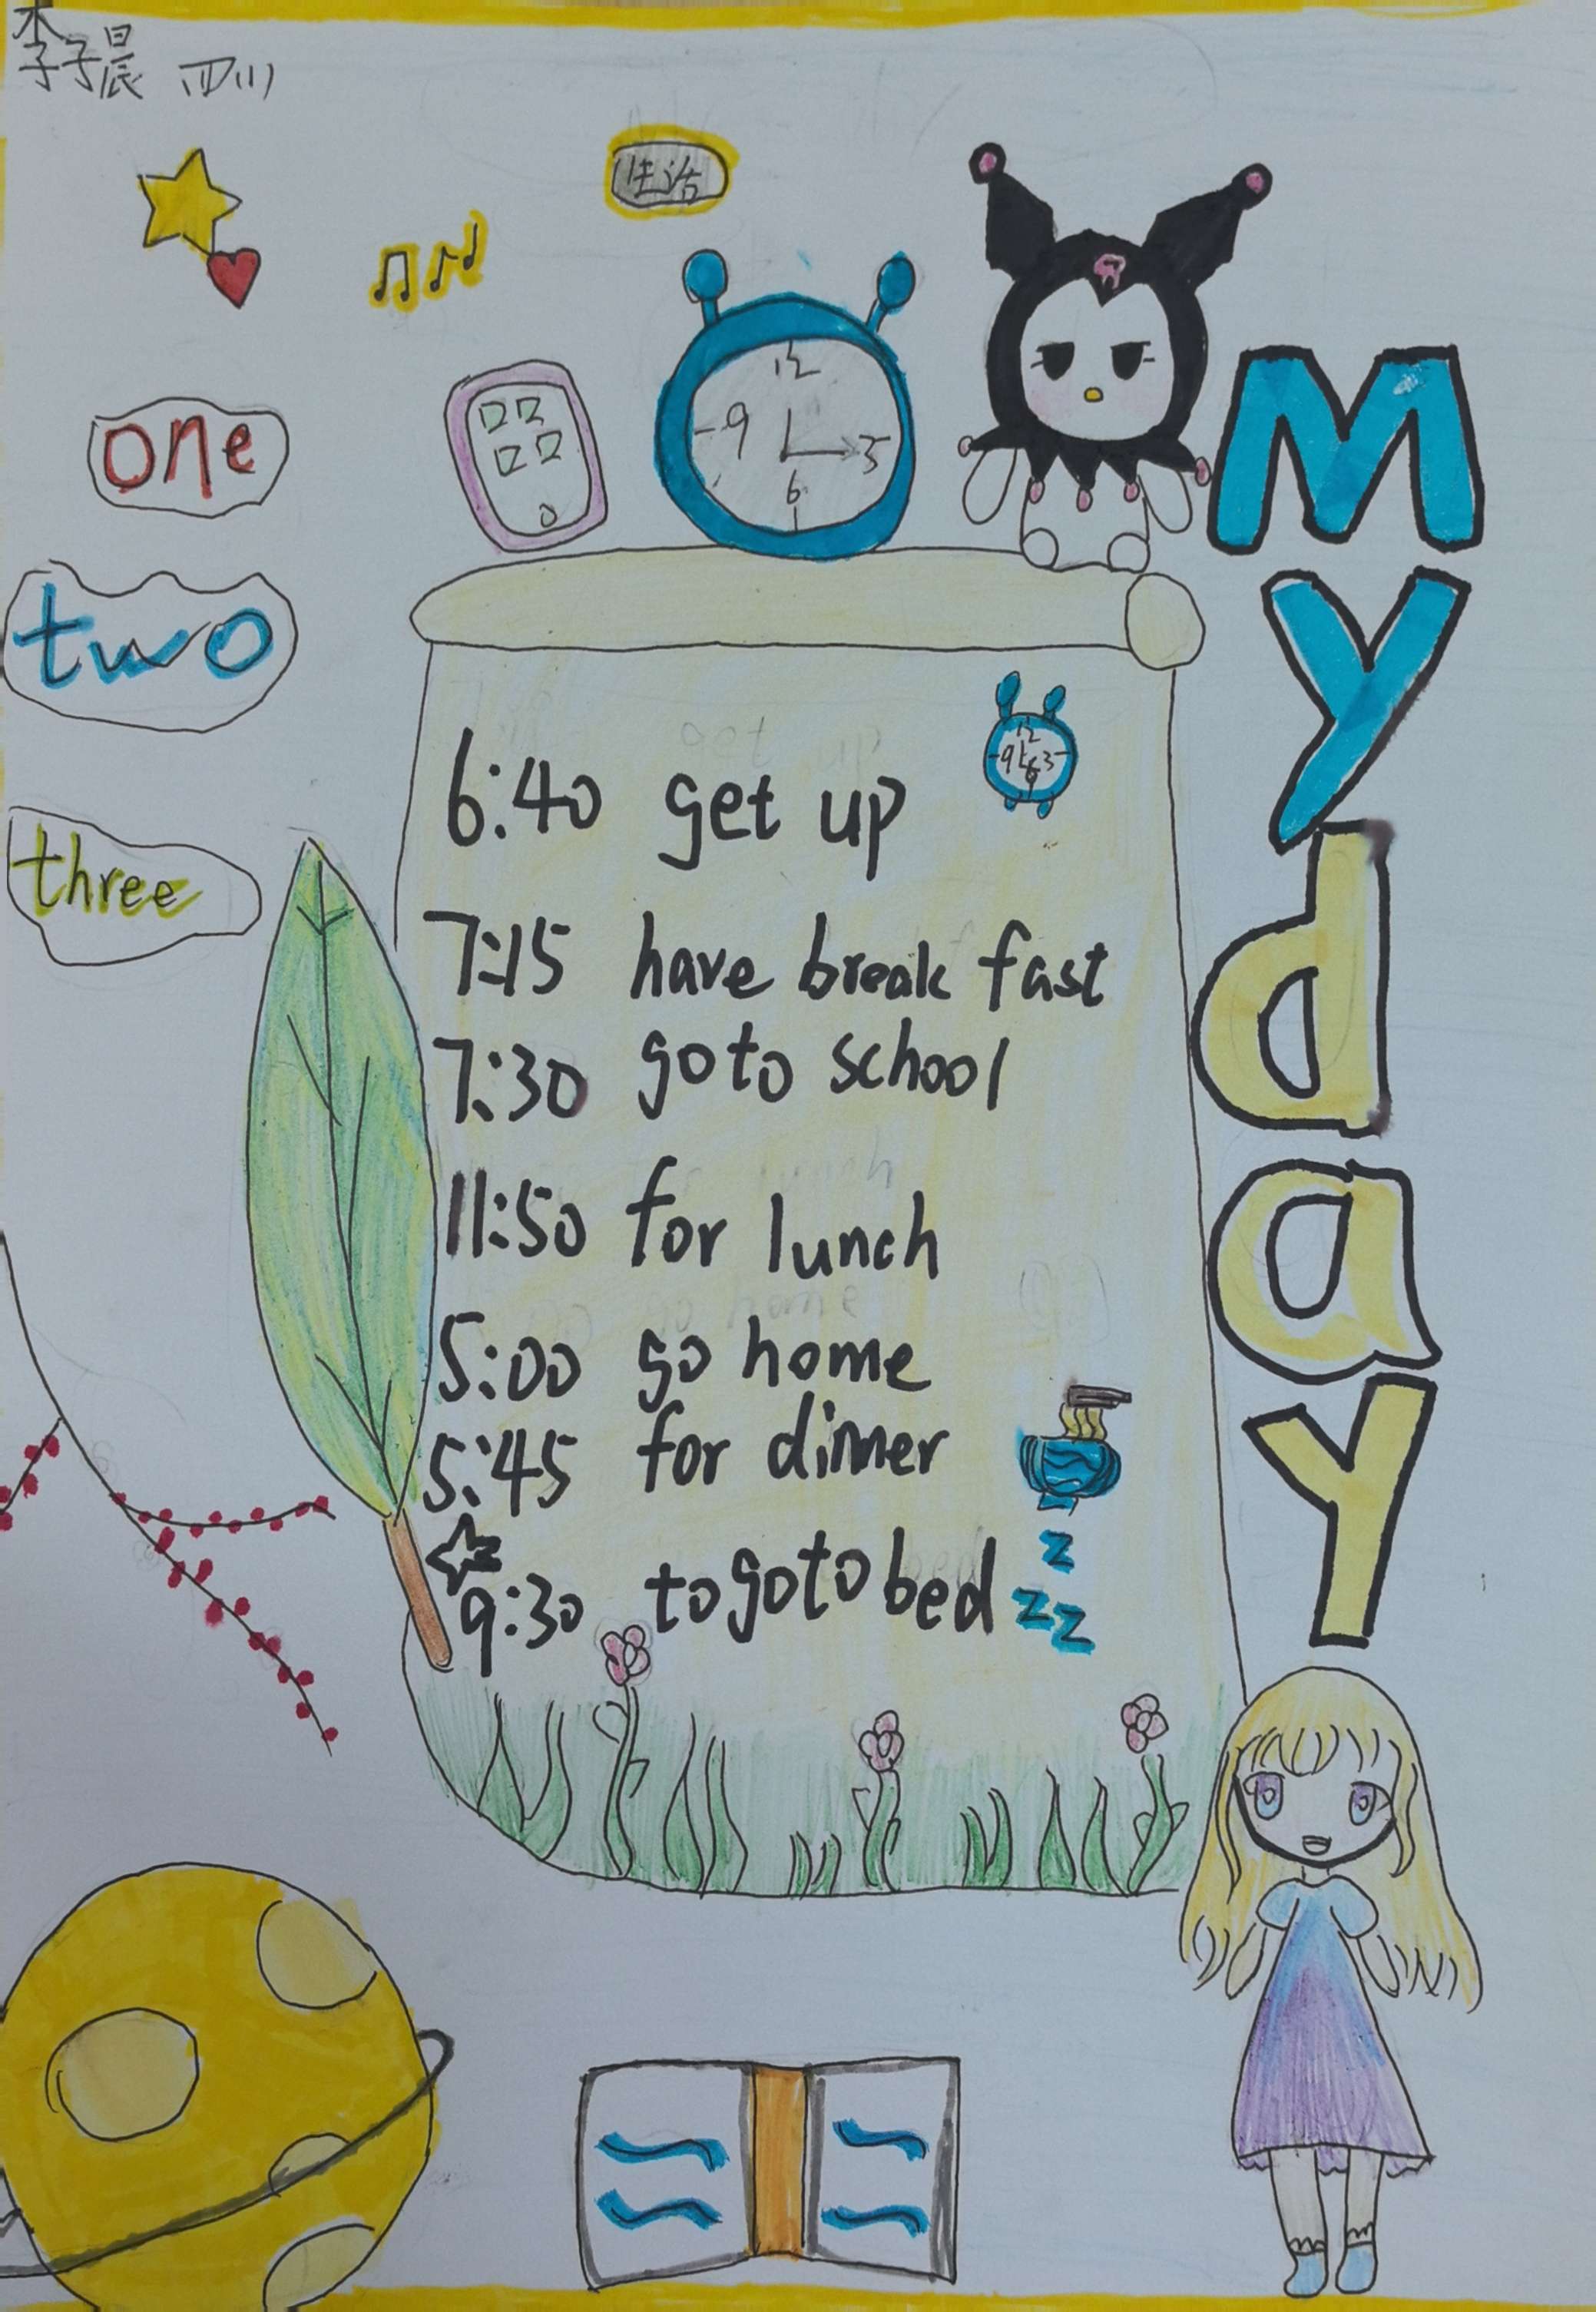 李子晨 四(1)
生活
12
9 3
6
one
two
three
My day
12
9 3
6
6:40 get up
7:15 have break fast
7:30 go to school
11:50 for lunch
5:00 go home
5:45 for dinner
9:30 to go to bed
z
z z